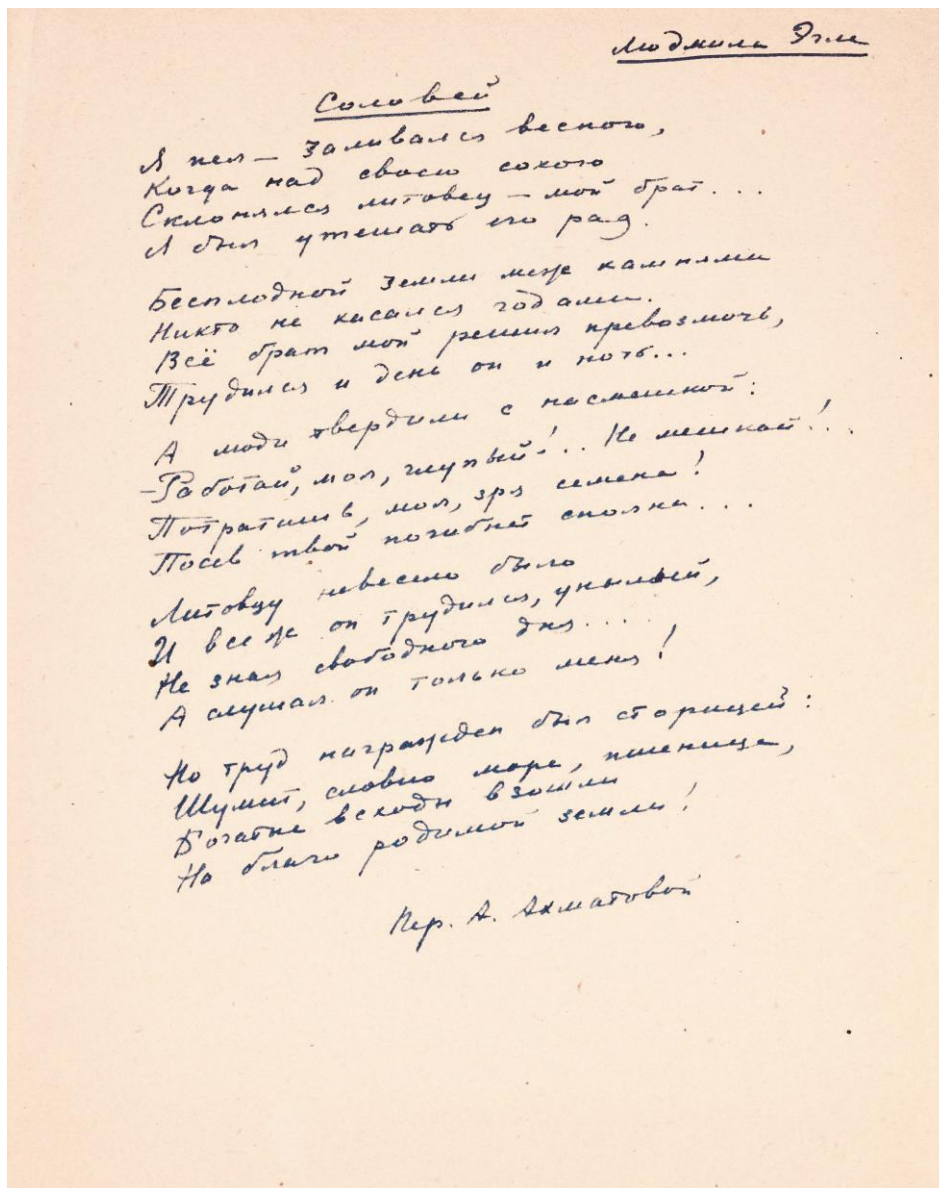 Людмила Эгле
Соловей
Я пел — заливался весною,
Когда над своею сохою
Склонялся литовец — мой брат...
Я был утешать его рад.
Бесплодной земли меж камнями
Никто не касался годами.
Всё брат мой решил превозмочь,
Трудился и день он и ночь...
А люди твердили с насмешкой:
— Работай, мол, глупый!.. Не мешкай!..
Потратишь, мол, зря семена!
Посев твой погибнет сполна...
Литовцу невесело было
И все ж он трудился, унылый,
Не зная свободного дня....
А слушал он только меня!
Но труд награжден был сторицей:
Шумит, словно море, пшеница,
Богатые всходы взошли
На благо родимой земли!
Пер. А. Ахматовой